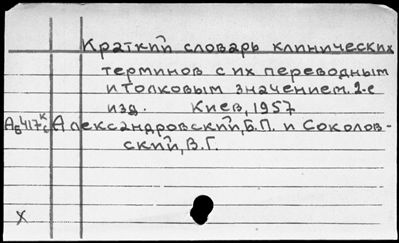 Краткий словарь клинических
терминов с их переводным
и толковым значением. 2-е
изд. Киев, 1957
Александровский, Б.П. и Соколов-
ский, В.Г.
X